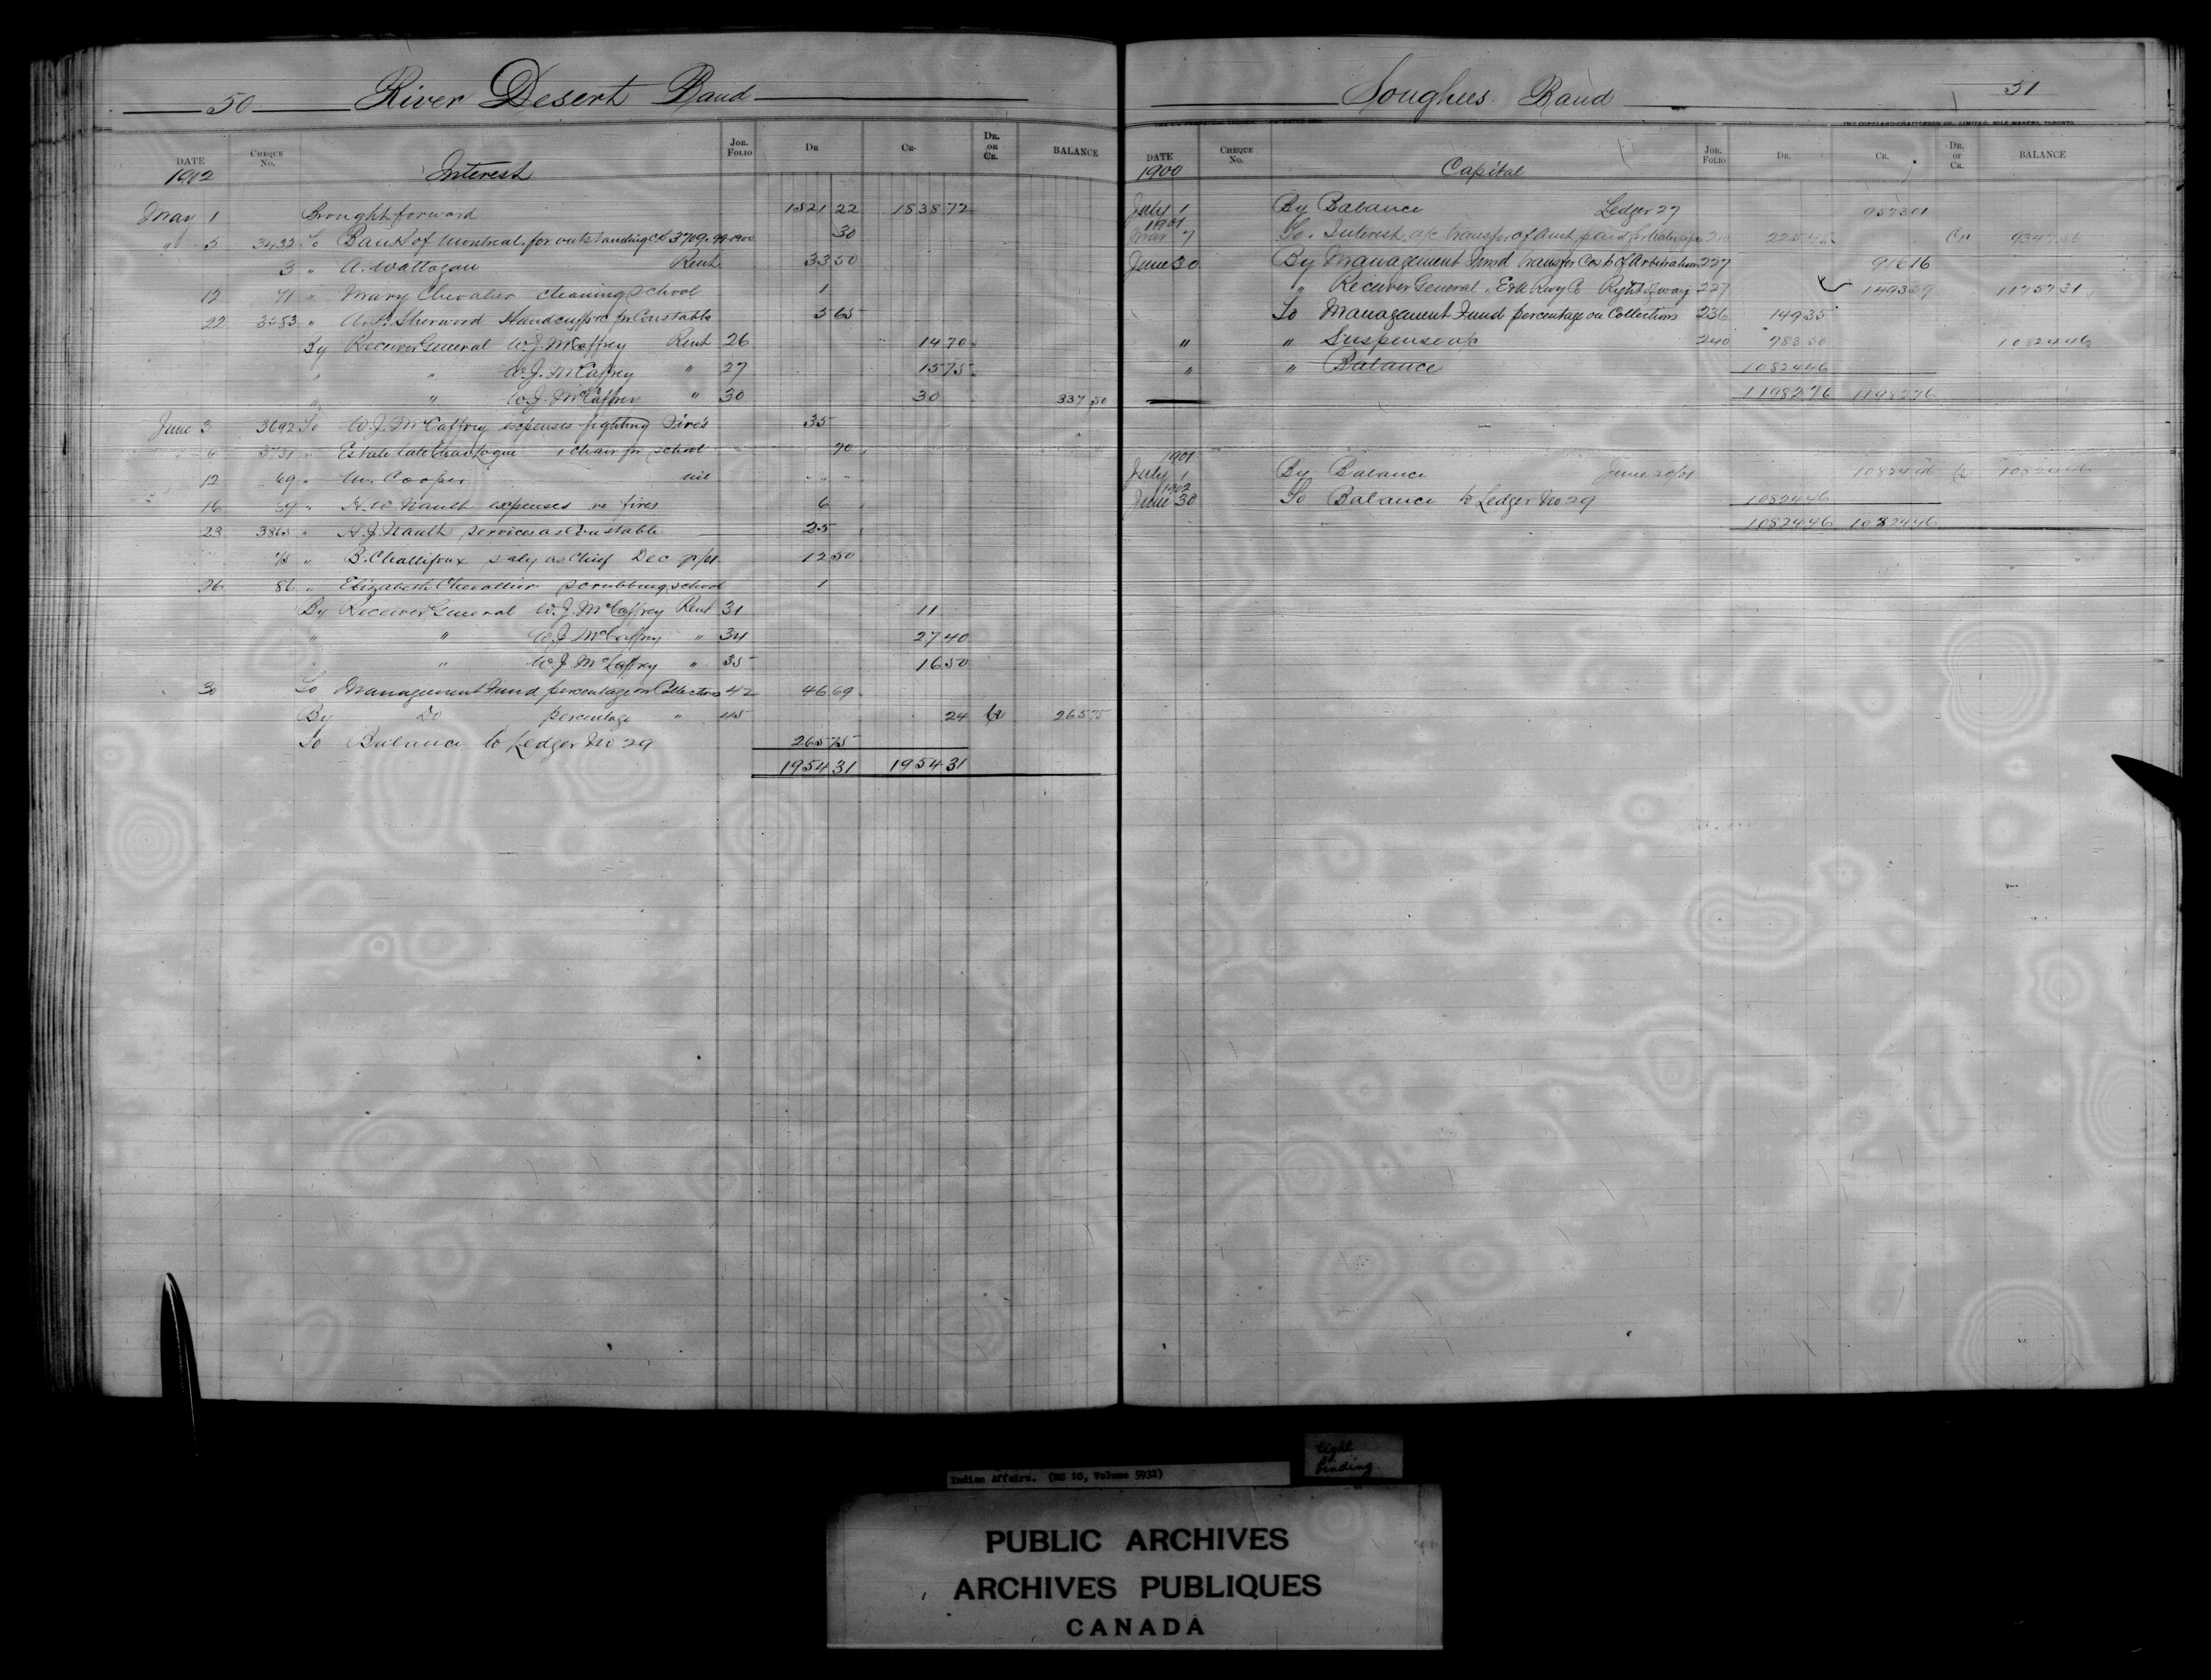 50 River Desert Band
DATE CHEQUE No. JOR. FOLIO DR CR. DR. OR CR. BALANCE
1902 Interest
May 1 Brought forward 1521 22 1838 72
" 5 3432 To Bank of Montreal, for outstanding ck 3709. 99-1900 30
3 " A. Wattagan Rent 33 50
12 71 " Mary Chevalier cleaning school 1
22 3583 " A.P. Sherwood Handcuffs &c for Constable 5 65
By Receiver General W.J. McCaffrey Rent 26 14 70
" " W.J. McCaffrey " 27 15 75
" " W.J. McCaffrey " 30 30 337 50
June 3 3692 To W.J. McCaffrey expenses fighting Fires 35
6 3731 " Estate late Chas Logue 1 chair for school 70
12 69 " M. Cooper nil " "
16 59 " H.W. Nault expenses re fires 6
23 3865 " H.J. Nault services as Constable 25
75 " B. Challifoux saly as Chief Dec qr/01 12 50
26 86 " Elizabeth Chevallier scrubbing school 1
By Receiver General W.J. McCaffrey Rent 31 11
" " W.J. McCaffrey " 34 27 40
" W.J. McCaffrey " 35 16 50
30 To Management Fund percentage on Collections 42 46 69
By Do percentage " 45 24 Cr 265 75
To Balance to Ledger No 29 265 75
1954 31 1954 31
Songhees Band 51
THE COPELAND-CHATTERSON CO., LIMITED, SOLE MAKERS, TORONTO.
DATE CHEQUE No. JOR. FOLIO DR. CR. DR. OR CR. BALANCE
1900 Capital
July 1 By Balance Ledger 27 9573 01
1901
Mar 7 To Interest a/c transfer of Amt paid for Water pipe 225 45 Cr 9347 56
June 30 By Management Fund transfer Cost of Arbitration 227 916 16
" Receiver General, E&N Rwy Co Right of way 227 1493 59 11757 31
To Management Fund percentage on Collections 236 149 35
" " Suspense a/c 240 783 50 10824 46
" " Balance 10824 46
11982 76 11982 76
1901
July 1 By Balance June 30/01 10824 46 Cr 10824 46
1902
June 30 To Balance to Ledger No 29 10824 46
10824 46 10824 46
tight
binding
Indian Affairs. (RG 10, Volume 5932)
PUBLIC ARCHIVES
ARCHIVES PUBLIQUES
CANADA